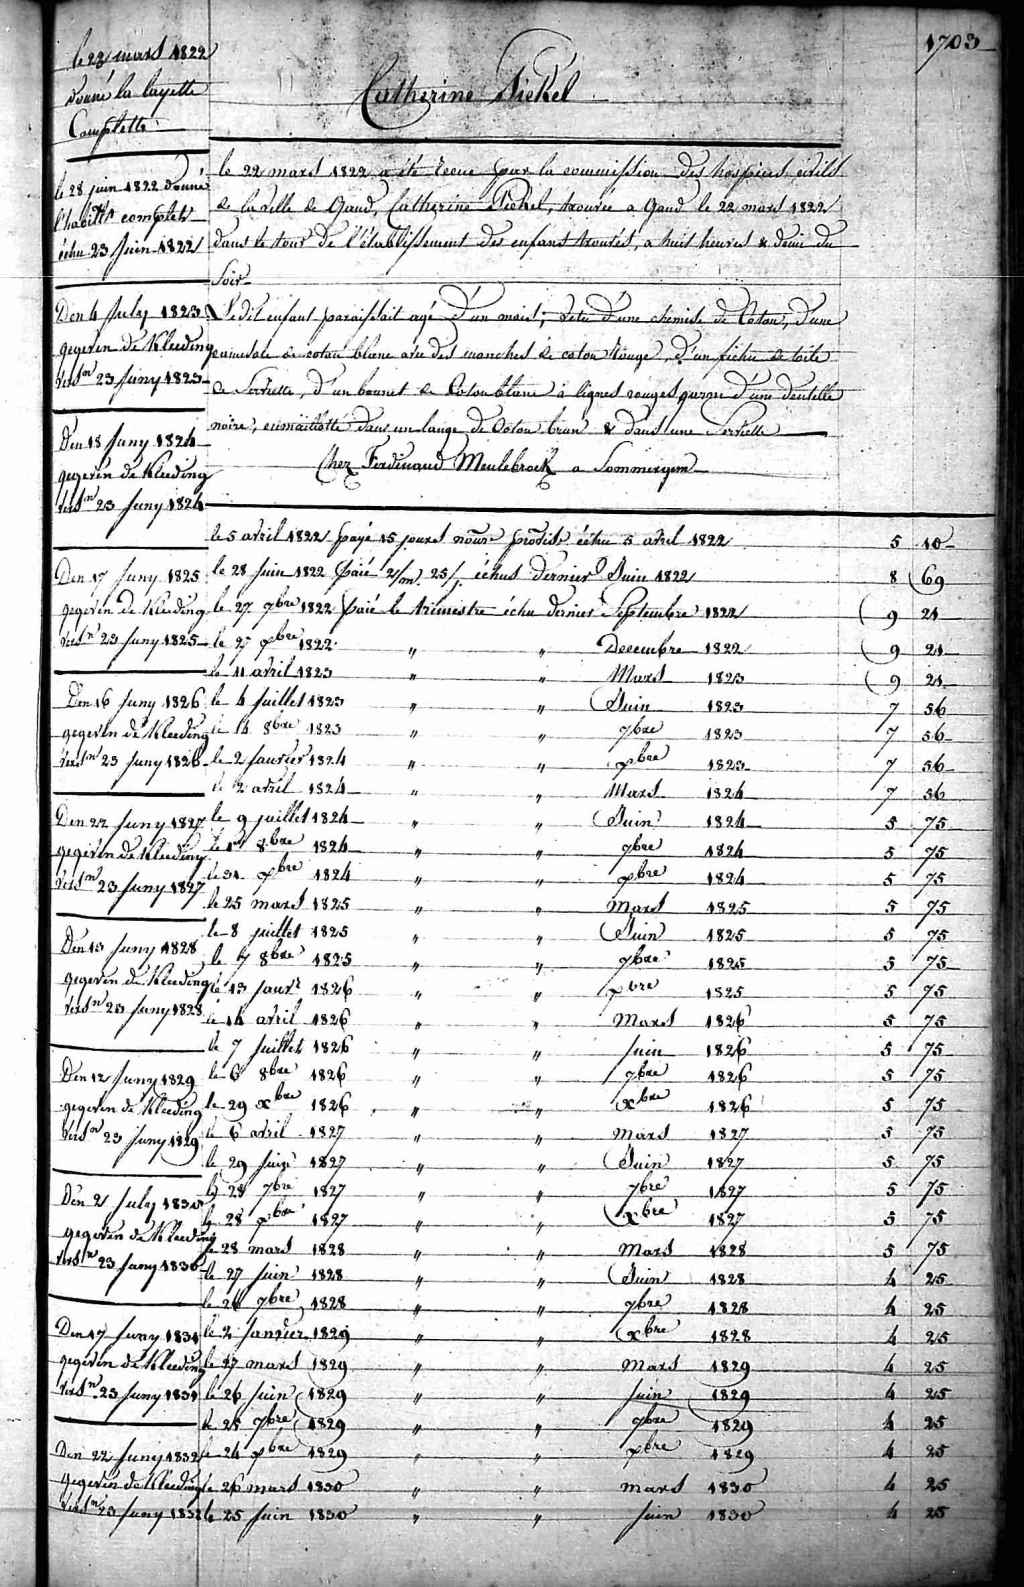 1703
Catherine Pickel
le 23 mars 1822
donné la layette
Complette
le 28 juin 1822 donné
l'habillt complet
échu 23 Juin 1822
Den 4 July 1823
gegeven de Kleeding
versn 23 Juny 1823
Den 18 Juny 1824
gegeven de Kleeding
versn 23 Juny 1824
Den 17 Juny 1825
gegeven de Kleeding
versn 23 Juny 1825
Den 16 Juny 1826
gegeven de Kleeding
versn 23 Juny 1826
Den 22 Juny 1827
gegeven de Kleeding
versn 23 Juny 1827
Den 13 Juny 1828
gegeven de Kleeding
versn 23 Juny 1828
Den 12 Juny 1829
gegeven de Kleeding
versn 23 Juny 1829
Den 2 July 1830
gegeven de Kleeding
versn 23 Juny 1830
Den 17 Juny 1831
gegeven de Kleeding
versn 23 Juny 1831
Den 22 Juny 1832
gegeven de Kleeding
versn 23 Juny 1832
le 22 mars 1822 a été recue par la commission des hospices civils
de la ville de Gand, Catherine Pickel, trouvée a Gand le 22 mars 1822
dans le tour de l'établissement des enfans trouvés, a huit heures & demi du
Soir
Le dit enfant paraissait agé d'un mois; vetu d'une chemise de Coton, d'une
camisole de coton blanc avec des manches de coton Rouge, d'un fichu de toile
de Serviette, d'un bonnet de Coton blanc à lignes rouges garni d'une dentelle
noire, emmaillotté dans un lange de Coton brun & dans une Serviette
Chez Ferdinand Meulebroek a Sommergem
le 5 avril 1822 payé 15 jours échu 5 avril 1822 5 10
le 28 juin 1822 paié 2/m 25/j échus dernier Juin 1822 8 69
le 27 7bre 1822 paié le trimestre échu dernier Septembre 1822 9 21
le 27 xbre 1822 " " Decembre 1822 9 21
le 11 avril 1823 " " Mars 1823 9 21
le 4 juillet 1823 " " Juin 1823 7 56
le 14 8bre 1823 " " 7bre 1823 7 56
le 2 janvier 1824 " " xbre 1823 7 56
le 2 avril 1824 " " Mars 1824 7 56
le 9 juillet 1824 " " Juin 1824 5 75
le 1r 8bre 1824 " " 7bre 1824 5 75
le 31 xbre 1824 " " xbre 1824 5 75
le 25 mars 1825 " " Mars 1825 5 75
le 8 juillet 1825 " " Juin 1825 5 75
le 7 8bre 1825 " " 7bre 1825 5 75
le 13 janvr 1826 " " xbre 1825 5 75
le 14 avril 1826 " " Mars 1826 5 75
le 7 juillet 1826 " " juin 1826 5 75
le 6 8bre 1826 " " 7bre 1826 5 75
le 29 xbre 1826 " " xbre 1826 5 75
le 6 avril 1827 " " Mars 1827 5 75
le 29 juin 1827 " " Juin 1827 5 75
le 28 7bre 1827 " " 7bre 1827 5 75
le 28 xbre 1827 " " xbre 1827 5 75
le 28 mars 1828 " " Mars 1828 5 75
le 27 juin 1828 " " Juin 1828 4 25
le 26 7bre 1828 " " 7bre 1828 4 25
le 2 janvier 1829 " " xbre 1828 4 25
le 27 mars 1829 " " Mars 1829 4 25
le 26 juin 1829 " " juin 1829 4 25
le 25 7bre 1829 " " 7bre 1829 4 25
le 24 xbre 1829 " " xbre 1829 4 25
le 26 mars 1830 " " mars 1830 4 25
le 25 juin 1830 " " juin 1830 4 25